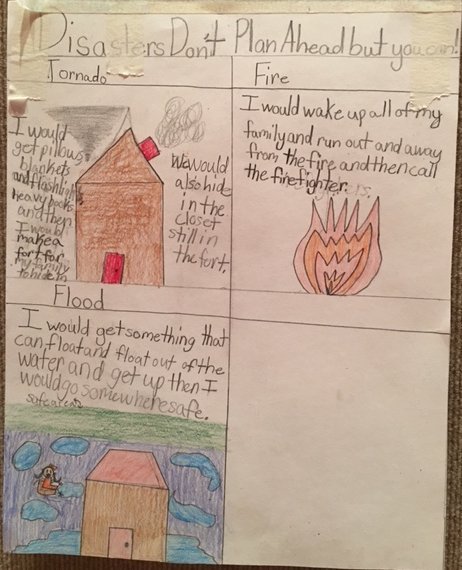 Disasters Don't Plan Ahead but you can!
Tornado
I would
get pillows
blankets
and flashlights
heavy books
and then
I would
make a
fort for
my family
to hide in
We would
also hide
in the
closet
still in
the fort.
Fire
I would wake up all of my
family and run out and away
from the fire and then call
the firefighters.
Flood
I would get something that
can float and float out of the
water and get up then I
would go somewhere safe.
safe area